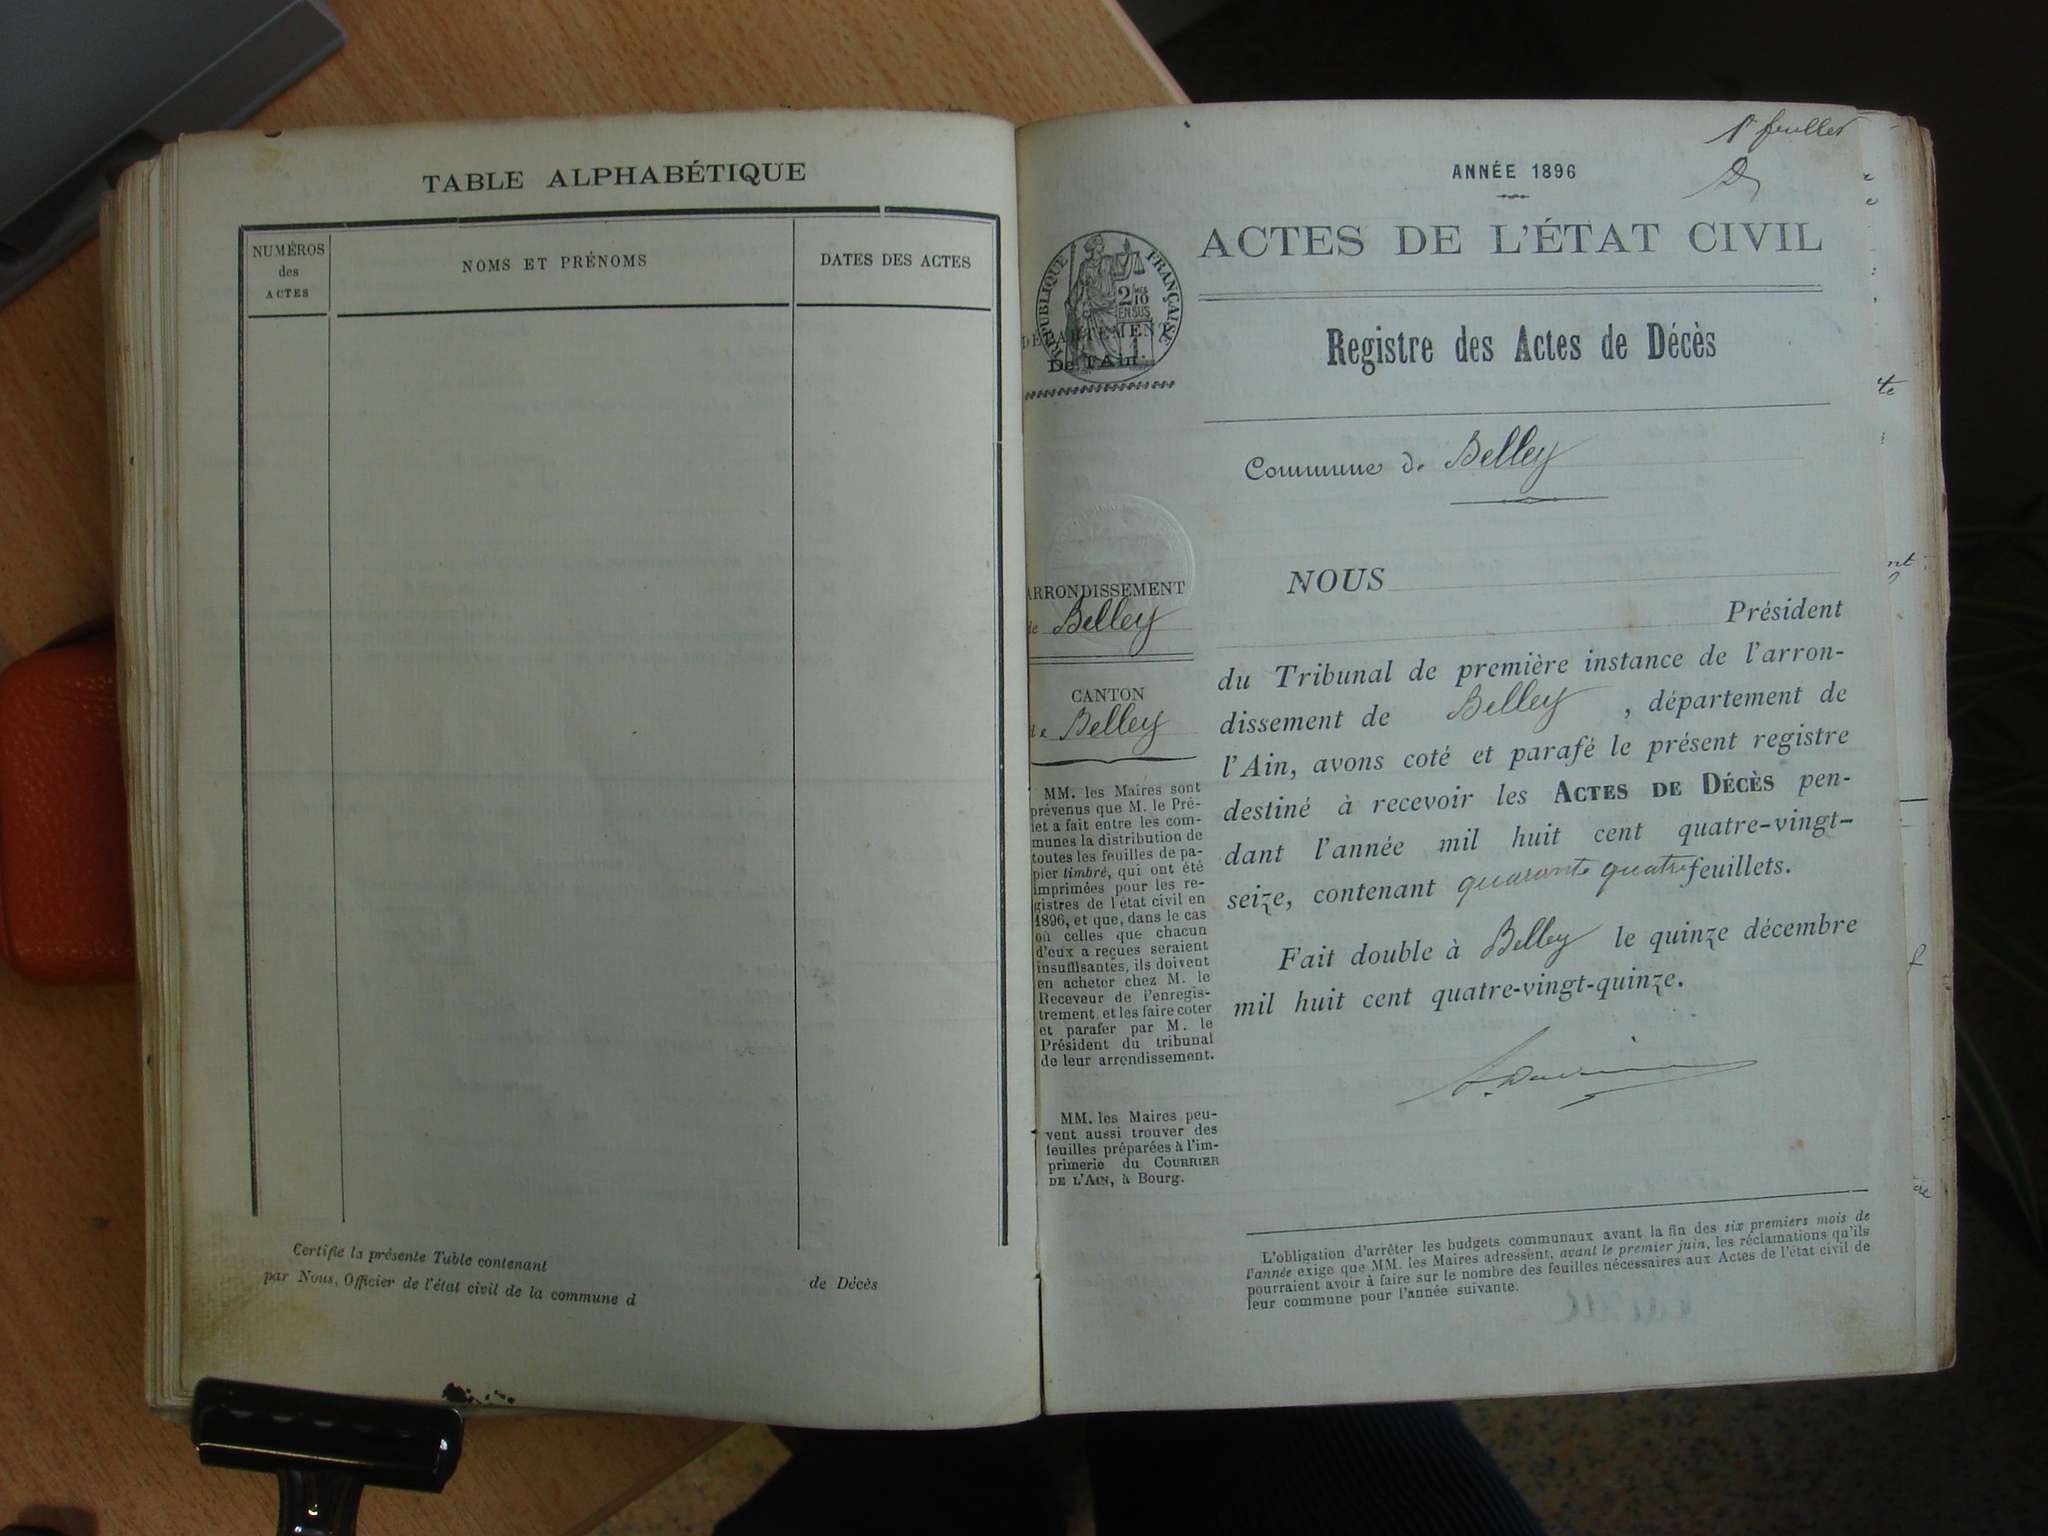 TABLE ALPHABÉTIQUE
NUMÉROS
des
ACTES
NOMS ET PRÉNOMS
DATES DES ACTES
Certifié la présente Table contenant
de Décès
par Nous, Officier de l'état civil de la commune d
1r feuillet
ANNÉE 1896
ACTES DE L'ÉTAT CIVIL
RÉPUBLIQUE FRANÇAISE
2/10
EN SUS
DÉPARTEMENT
De l'Ain.
Registre des Actes de Décès
Commune de Belley
ARRONDISSEMENT
de Belley
CANTON
de Belley
MM. les Maires sont
prévenus que M. le Pré-
fet a fait entre les com-
munes la distribution de
toutes les feuilles de pa-
pier timbré, qui ont été
imprimées pour les re-
gistres de l'état civil en
1896, et que, dans le cas
où celles que chacun
d'eux a reçues seraient
insuffisantes, ils doivent
en acheter chez M. le
Receveur de l'enregis-
trement et les faire coter
et parafer par M. le
Président du tribunal
de leur arrondissement.
MM. les Maires peu-
vent aussi trouver des
feuilles préparées à l'im-
primerie du COURRIER
DE L'AIN, à Bourg.
NOUS
Président
du Tribunal de première instance de l'arron-
dissement de Belley, département de
l'Ain, avons coté et parafé le présent registre
destiné à recevoir les ACTES DE DÉCÈS pen-
dant l'année mil huit cent quatre-vingt-
seize, contenant quarante quatre feuillets.
Fait double à Belley le quinze décembre
mil huit cent quatre-vingt-quinze.
L'obligation d'arrêter les budgets communaux avant la fin des six premiers mois de
l'année exige que MM. les Maires adressent, avant le premier juin, les réclamations qu'ils
pourraient avoir à faire sur le nombre des feuilles nécessaires aux Actes de l'état civil de
leur commune pour l'année suivante.